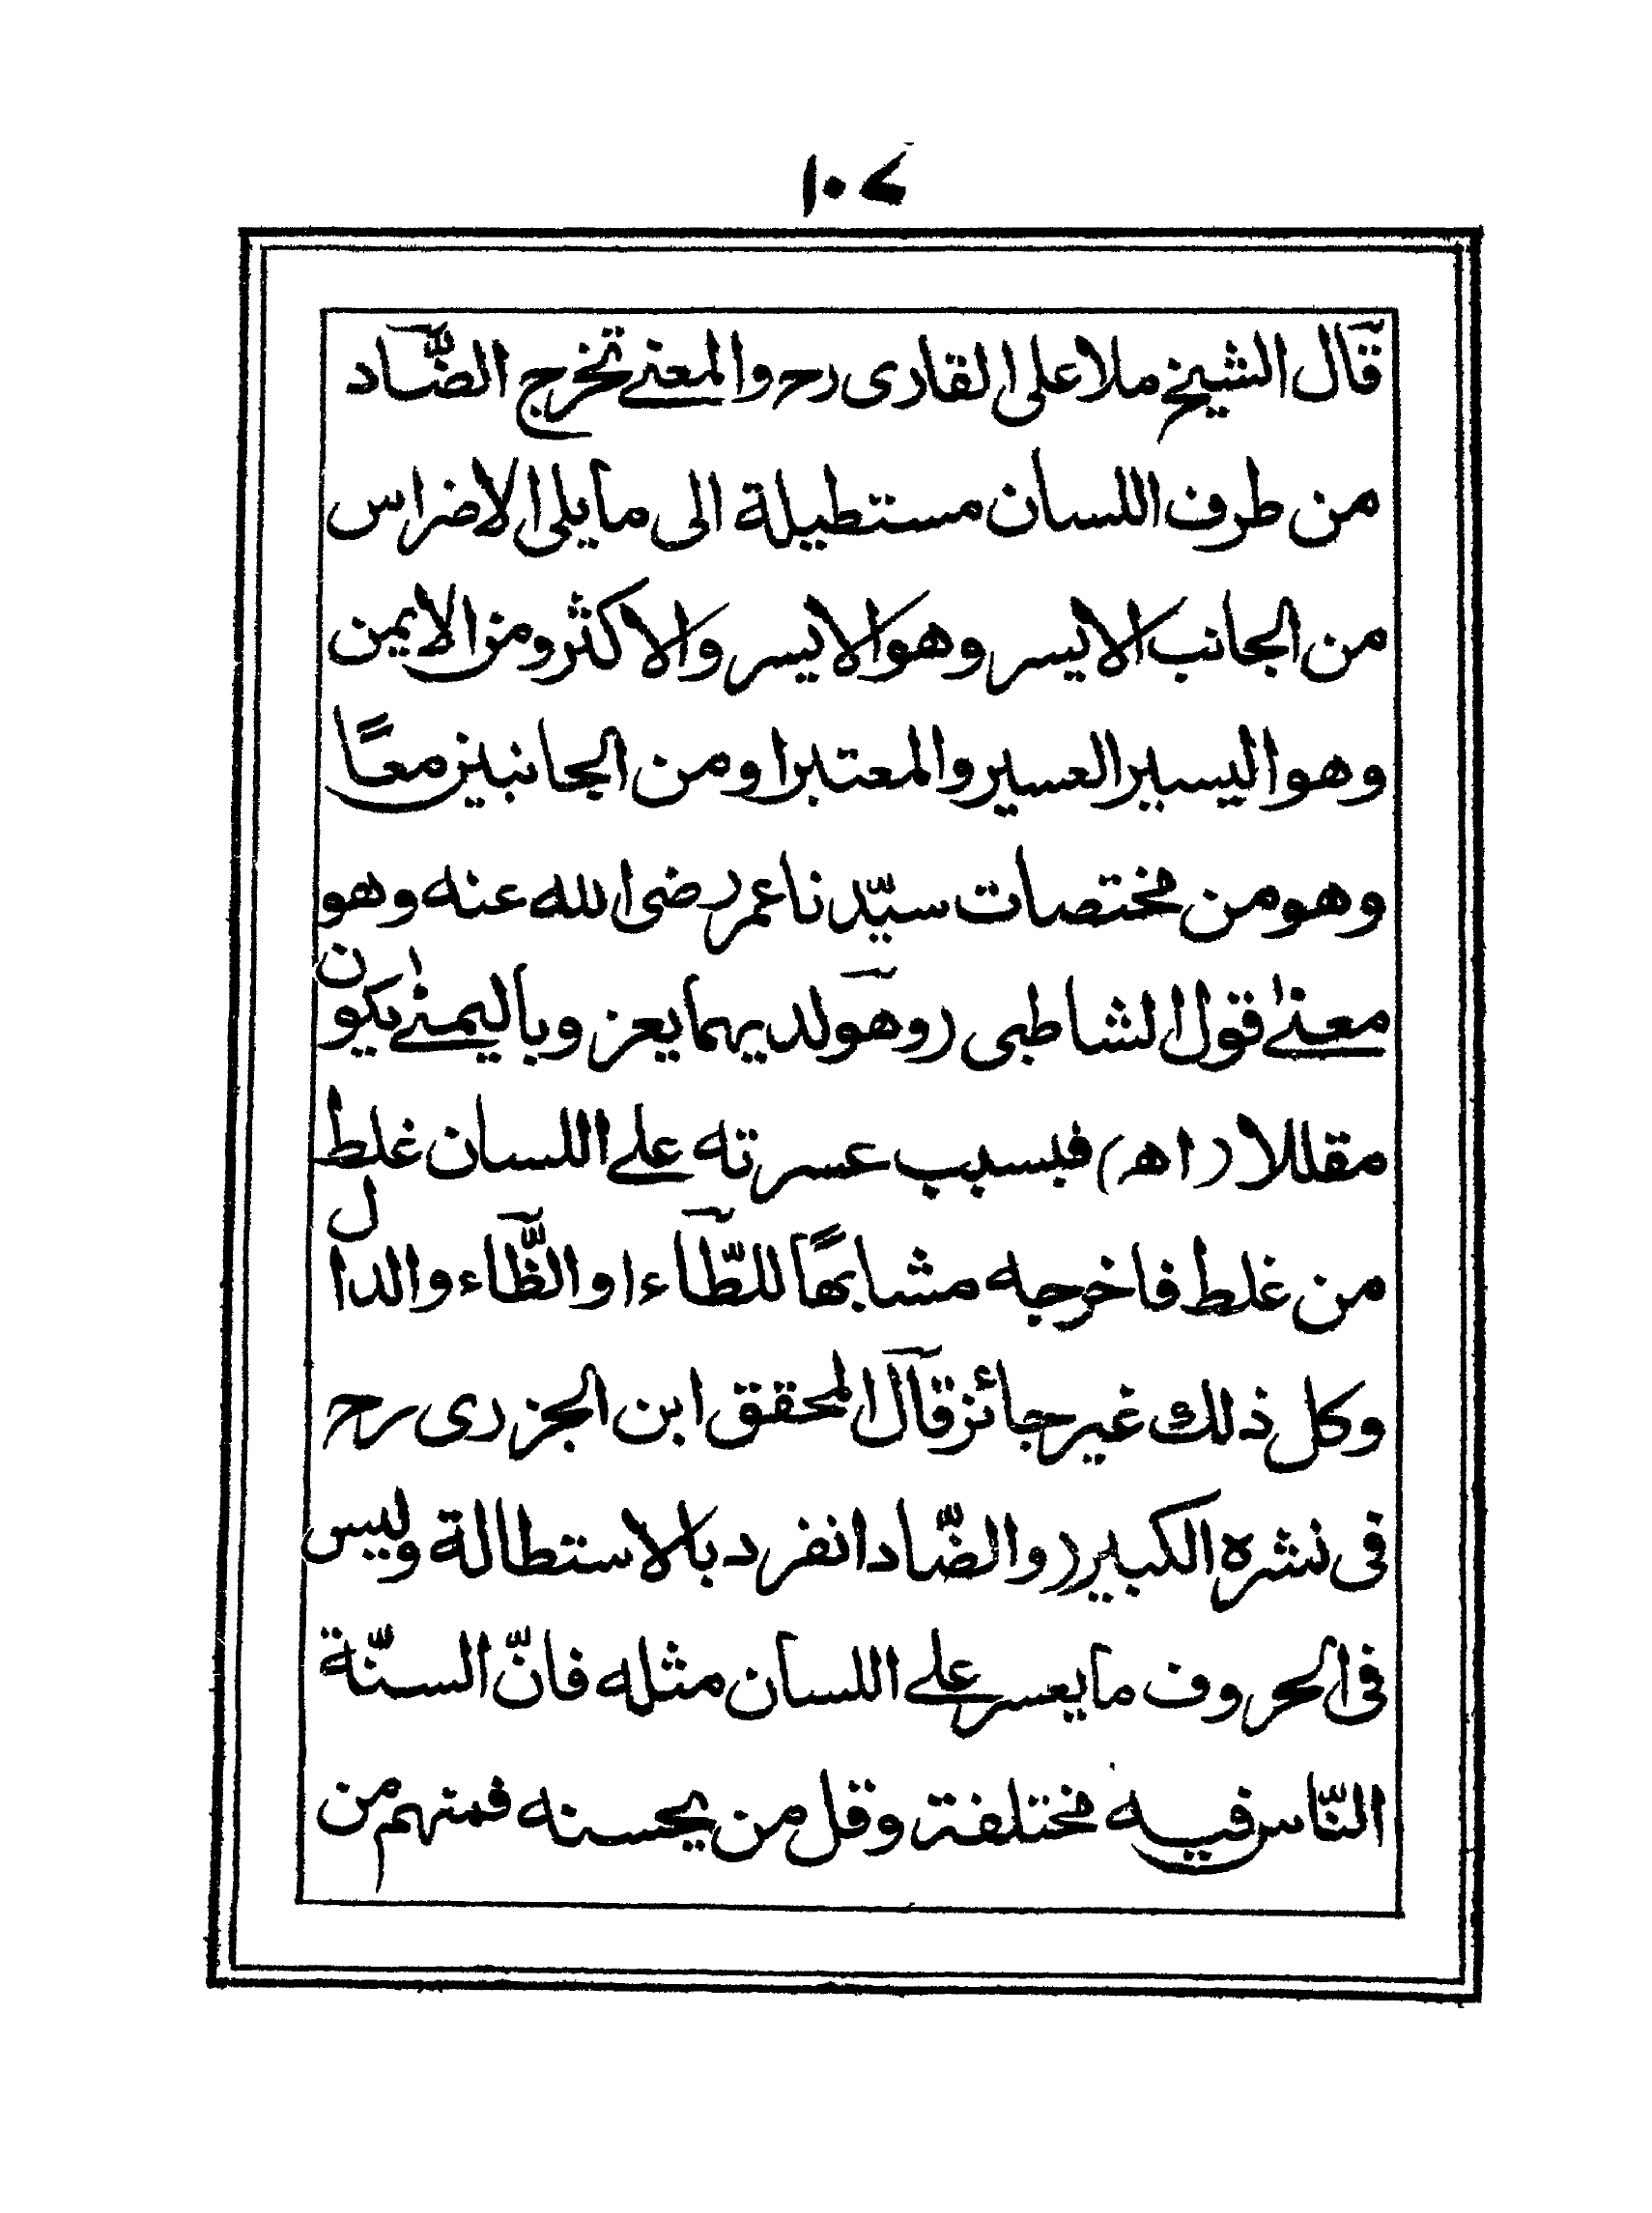 ١٠٧
قال الشيخ ملا على القارى رح والمعنے تخرج الضّاد
من طرف اللسان مستطيلة الى ما يلى الاضراس
من الجانب الايسر وهو الايسر والاكثر ومن الايمن
وهو اليسير العسير والمعتبر او من الجانبين معًا
وهو من مختصات سيّدنا عمر رضى الله عنه وهو
معنےٰ قول الشاطبى (وهو لديهما يعز وباليمنےٰ يكون
مقللا (اھ) فبسبب عسرته علے اللسان غلط
من غلط فاخرجه مشابهًا للطّآء او الظّآء والدال
وكل ذلك غير جائز قال المحقق ابن الجزرى رح
فى نشره الكبير (والضّاد انفرد بالاستطالة وليس
فى الحروف ما يعسر علے اللسان مثله فانّ السنّة
النّاس فيه مختلفة وقل من يحسنه فمنهم من